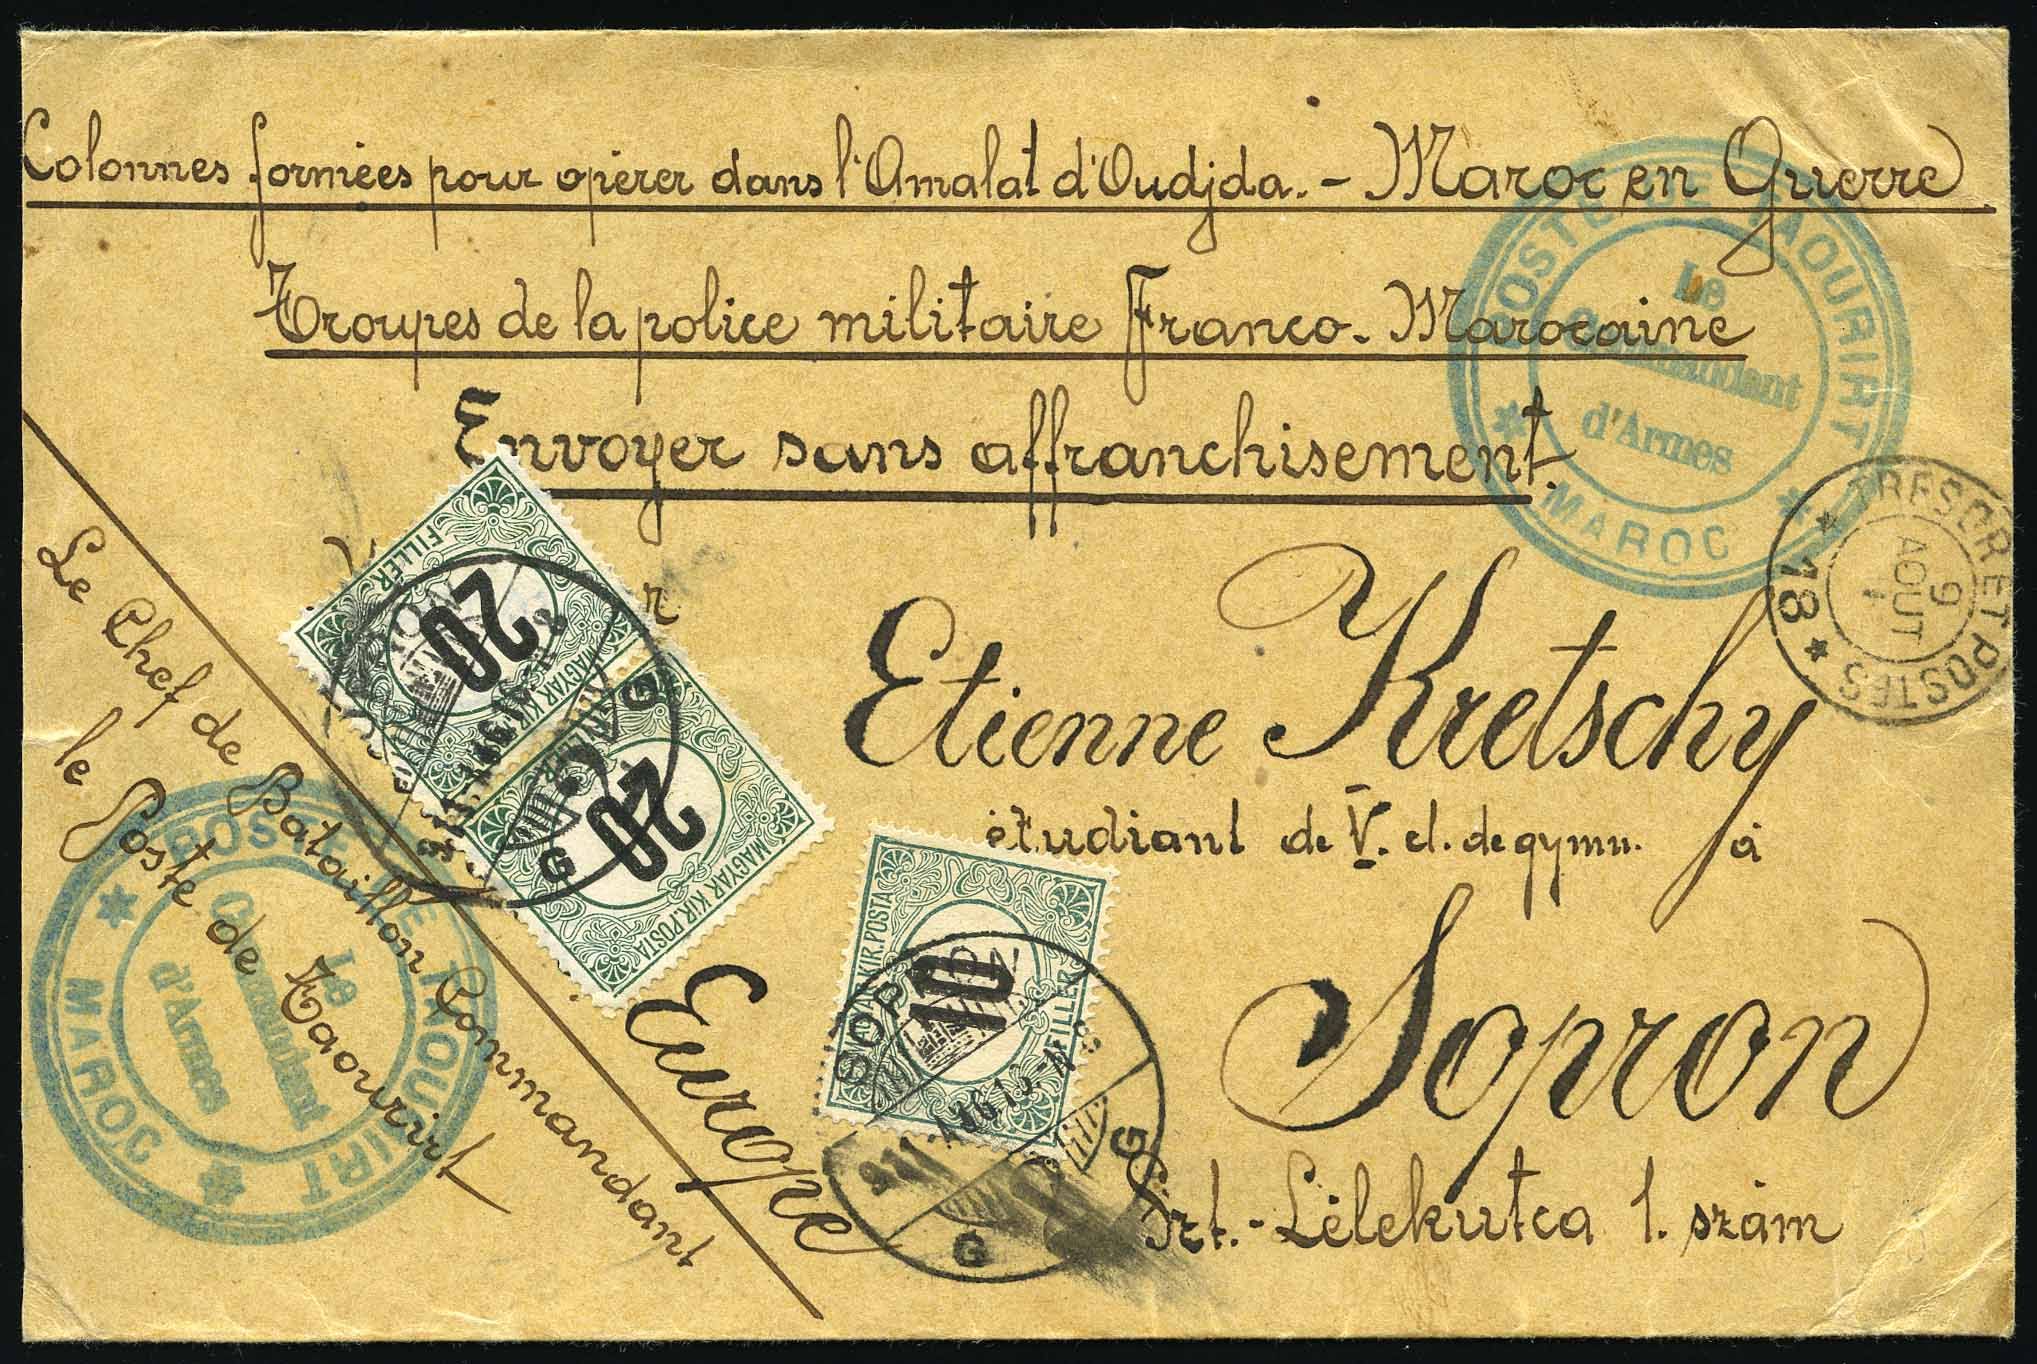 Colonnes formées pour opérer dans l'Amalat d'Oudjda. - Maroc en Guerre
Troupes de la police militaire Franco-Marocaine
Envoyer sans affranchisement.
POSTE DE TAOURIRT
Le
Commandant
d'Armes
MAROC
TRESOR ET POSTES
9
AOUT
18
Le Chef de Bataillon Commandant
le Poste de Taourirt
POSTE DE TAOURIRT
Le
Commandant
d'Armes
MAROC
FILLÉR
20
MAGYAR KIR.
20
MAGYAR KIR. POSTA
G
G
Etienne Kretschy
étudiant de V. cl. de gymn. à
Sopron
Szt.-Lélekutca 1. szám
Europe
KIR. POSTA
10
FILLÉR
SOPRON
911
G
G